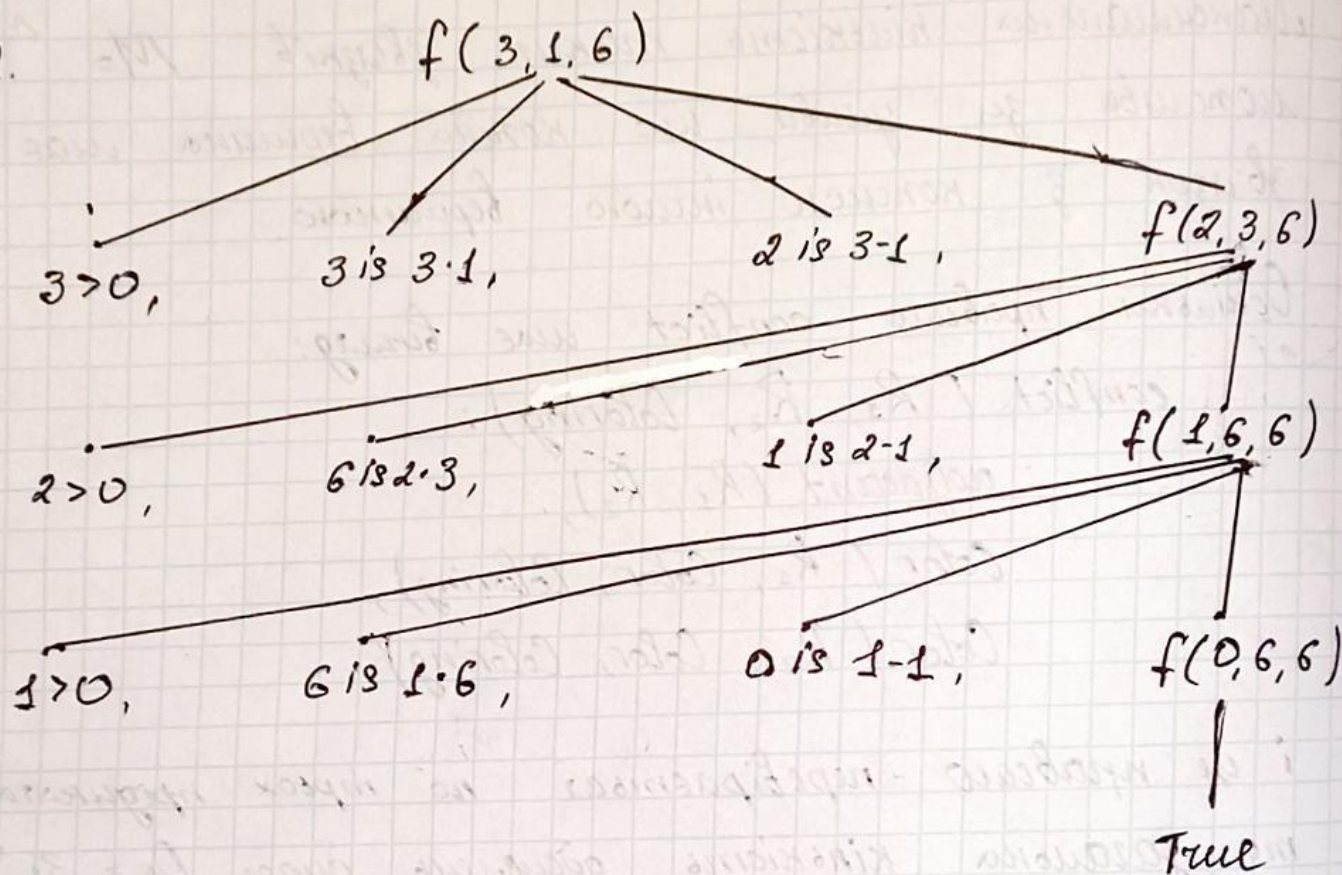 f(3,1,6)
3>0, 3 is 3·1, 2 is 3-1, f(2,3,6)
2>0, 6 is 2·3, 1 is 2-1, f(1,6,6)
1>0, 6 is 1·6, 0 is 1-1, f(0,6,6)
True